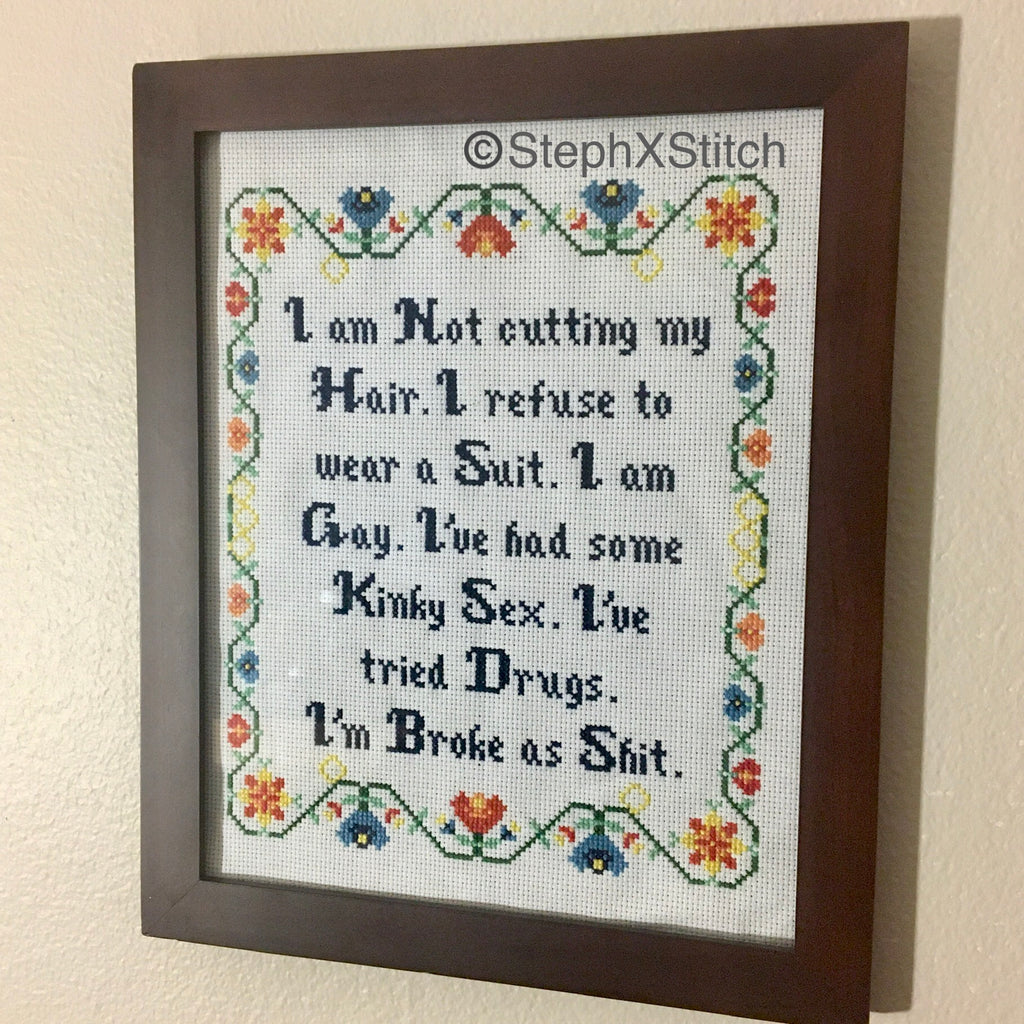 ©StephXStitch
I am Not cutting my
Hair. I refuse to
wear a Suit. I am
Gay. I've had some
Kinky Sex. I've
tried Drugs.
I'm Broke as Shit.